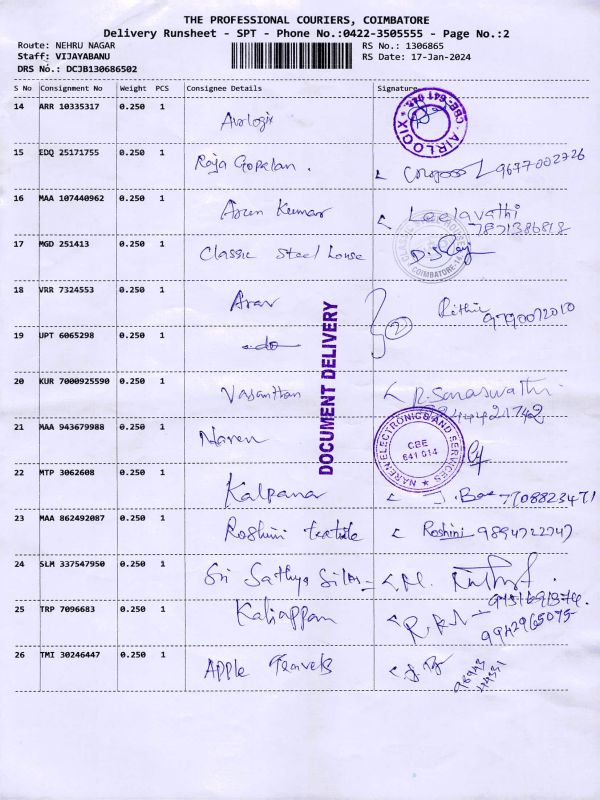 THE PROFESSIONAL COURIERS, COIMBATORE
Delivery Runsheet - SPT - Phone No.:0422-3505555 - Page No.:2
Route: NEHRU NAGAR
RS No.: 1306865
Staff: VIJAYABANU
RS Date: 17-Jan-2024
DRS No.: DCJB130686502
S No Consignment No Weight PCS Consignee Details Signature
14 ARR 10335317 0.250 1 Airlogix
AIRLOGIX CBE-641 045
15 EDQ 25171755 0.250 1 Raja Gopalan. 9677002726
16 MAA 107440962 0.250 1 Arun Kumar Leelavathi
7871386818
17 MGD 251413 0.250 1 Classic Steel House
CLASSIC STEEL HOUSE COIMBATORE-14
18 VRR 7324553 0.250 1 Arav
2 Rithic 9790072010
19 UPT 6065298 0.250 1 -do-
DOCUMENT DELIVERY
20 KUR 7000925590 0.250 1 Vasanthan R. Saraswathi
21 MAA 943679988 0.250 1 Naren
NAREN ELECTRONICS AND SERVICES
CBE
641 014
22 MTP 3062608 0.250 1 Kalpana 7708823471
23 MAA 862492087 0.250 1 Roshini textile Roshini 9894722747
24 SLM 337547950 0.250 1 Sri Sathya Silks
25 TRP 7096683 0.250 1 Kaliappan
9942965075
26 TMI 30246447 0.250 1 Apple Travels